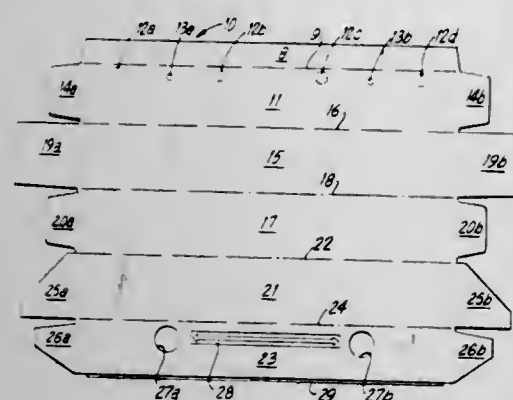 12a 13a 10 12b 9 12c 13b 12d
8
14a 11 14b
16
19a 15 19b
18
20a 17 20b
22
25a 21 25b
24
26a 23 26b
27a 28 29 27b